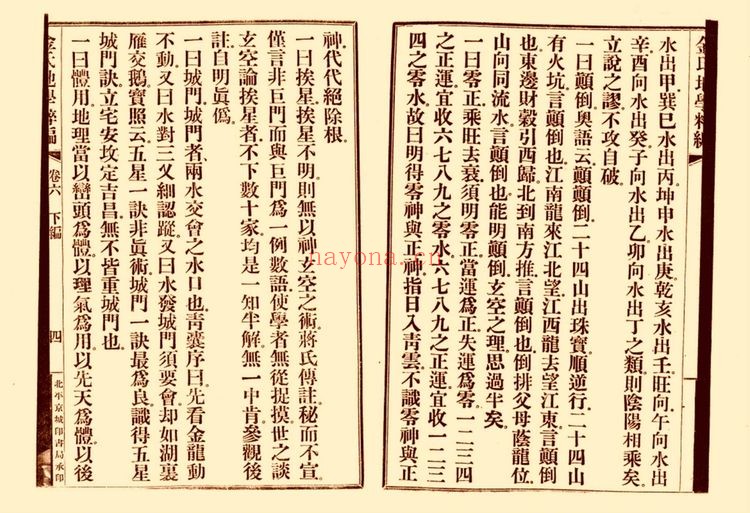 金氏地學粹編
水出甲巽巳水出丙坤申水出庚乾亥水出壬旺向午向水出
辛酉向水出癸子向水出乙卯向水出丁之類則陰陽相乘矣
立說之謬不攻自破
一曰顛倒奧語云顛顛倒二十四山出珠寶順逆行二十四山
有火坑言顛倒也江南龍來江北望江西龍去望江東言顛倒
也東邊財穀引西歸北到南方推言顛倒也倒排父母蔭龍位
山向同流水言顛倒也能明顛倒玄空之理思過半矣
一曰零正乘旺去衰須明零正當運爲正失運爲零一二三四
之正運宜收六七八九之零水六七八九之正運宜收一二三
四之零水故曰明得零神與正神指日入青雲不識零神與正
神代代絕除根
一曰挨星挨星不明則無以神玄空之術蔣氏傳註秘而不宣
僅言非巨門而與巨門爲一例數語使學者無從捉摸世之談
玄空論挨星者不下數十家均是一知半解無一中肯參觀後
註自明眞僞
一曰城門城門者兩水交會之水口也靑囊序曰先看金龍動
不動又曰水對三叉細認蹤又曰水發城門須要會却如湖裏
雁交鵝寶照云五星一訣非眞術城門一訣最爲良識得五星
城門訣立宅安坟定吉昌無不皆重城門也
一曰體用地理當以巒頭爲體以理氣爲用以先天爲體以後
金氏地學粹編
卷六 下編
四
北平京城印書局承印
hayona.cn